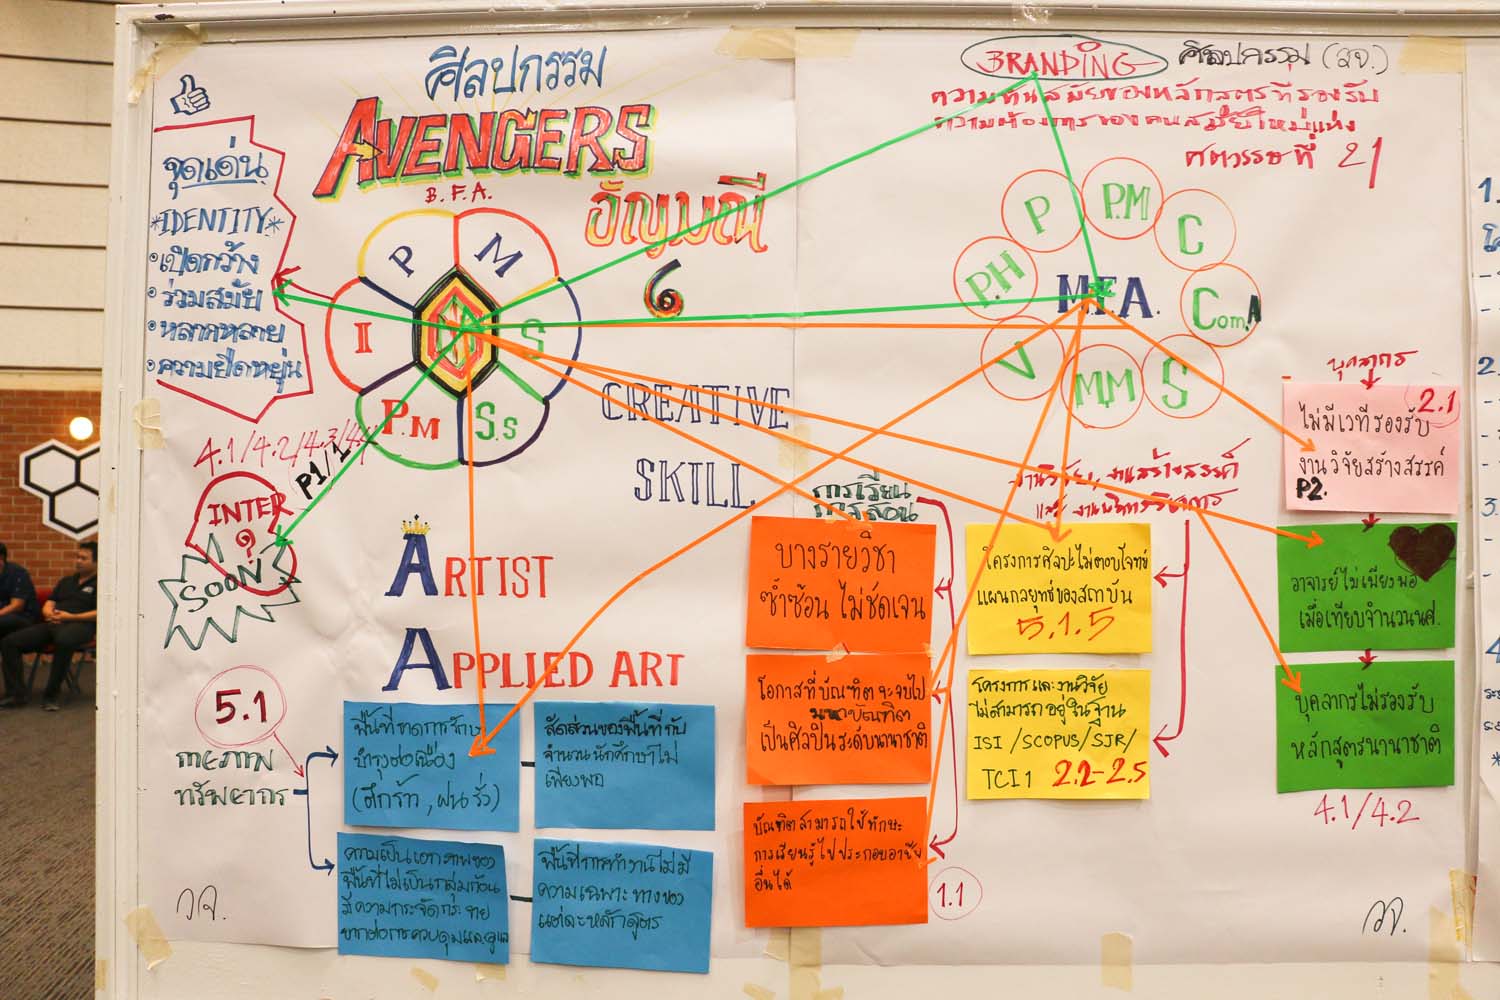 ศิลปกรรม
AVENGERS
B.F.A.
อัญมณี
6
จุดเด่น
*IDENTITY*
• เปิดกว้าง
• ร่วมสมัย
• หลากหลาย
• ความยืดหยุ่น
P
M
I
S
P.M
S.s
4.1/4.2/4.3/4.4
P1/1
INTER
?
SOON
CREATIVE
SKILL
ARTIST
APPLIED ART
5.1
กายภาพ
ทรัพยากร
พื้นที่ขาดการรักษา
บำรุงต่อเนื่อง
(ตึกร้าว, ฝนรั่ว)
สัดส่วนของพื้นที่กับ
จำนวนนักศึกษาไม่
เพียงพอ
ความเป็นเอกภาพของ
พื้นที่ไม่เป็นกลุ่มก้อน
มีความกระจัดกระจาย
ยากต่อการควบคุมและดูแล
พื้นที่การทำงานไม่มี
ความเฉพาะทางของ
แต่ละหลักสูตร
วจ.
BRANDING
ศิลปกรรม (วจ.)
ความทันสมัยของหลักสูตรที่รองรับ
ความต้องการของคนสมัยใหม่แห่ง
ศตวรรษที่ 21
P
P.M
C
P.H
M.F.A.
Com.A
V
M.M
S
การเรียน
การสอน
บางรายวิชา
ซ้ำซ้อน ไม่ชัดเจน
โอกาสที่บัณฑิตจะจบไป
มหาบัณฑิต
เป็นศิลปินระดับนานาชาติ
บัณฑิตสามารถใช้ทักษะ
การเรียนรู้ไปประกอบอาชีพ
อื่นได้
1.1
งานวิจัย, งานสร้างสรรค์
และ งานบริการวิชาการ
โครงการศิลปะไม่ตอบโจทย์
แผนกลยุทธ์ของสถาบัน
5.1.5
โครงการและงานวิจัย
ไม่สามารถอยู่ในฐาน
ISI /SCOPUS/SJR/
TCI 1 2.2-2.5
บุคลากร
2.1
ไม่มีเวทีรองรับ
งานวิจัยสร้างสรรค์
P2.
อาจารย์ไม่เพียงพอ
เมื่อเทียบจำนวนนศ.
บุคลากรไม่รองรับ
หลักสูตรนานาชาติ
4.1/4.2
วจ.
1.
2.
3.
4